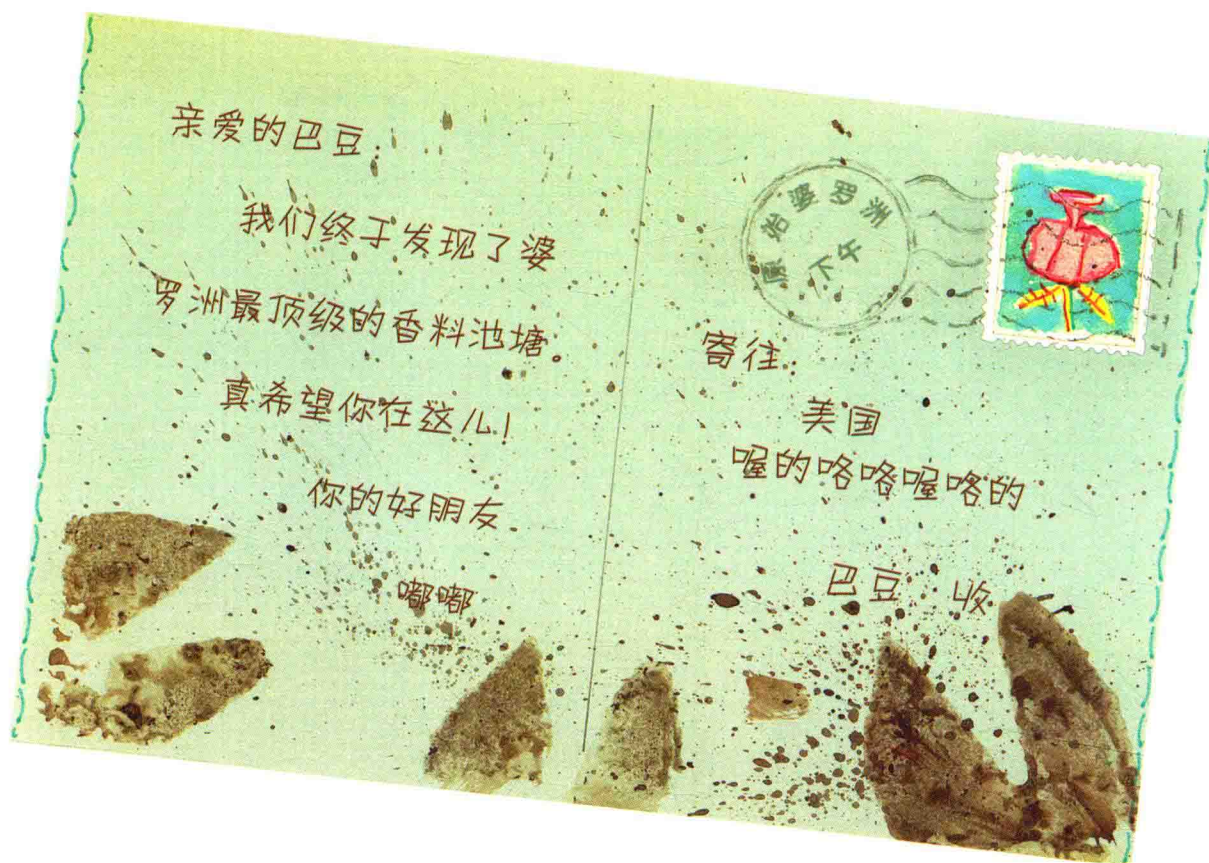 亲爱的巴豆：
我们终于发现了婆
罗洲最顶级的香料池塘。
真希望你在这儿！
你的好朋友
嘟嘟
原始婆罗洲
下午
寄往：
美国
喔的咯咯喔咯的
巴豆 收